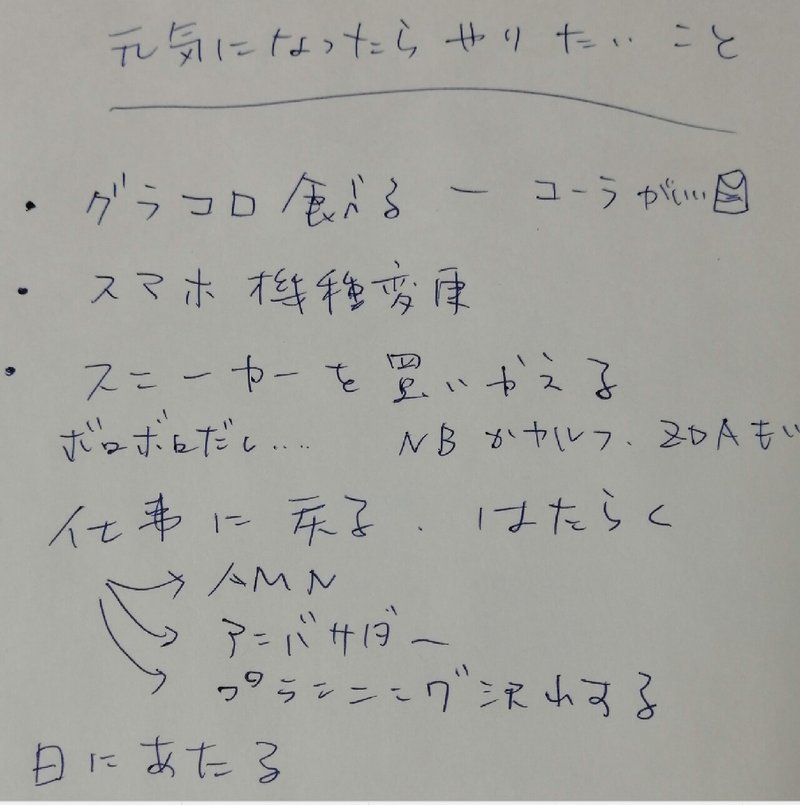 元気になったらやりたいこと
・グラコロ食べる ー コーラがいい
・スマホ機種変更
・スニーカーを買いかえる
ボロボロだし.... NBか ZDAもい
仕事に戻る.はたらく
AMN
アンバサダー
プランニング沢山する
日にあたる